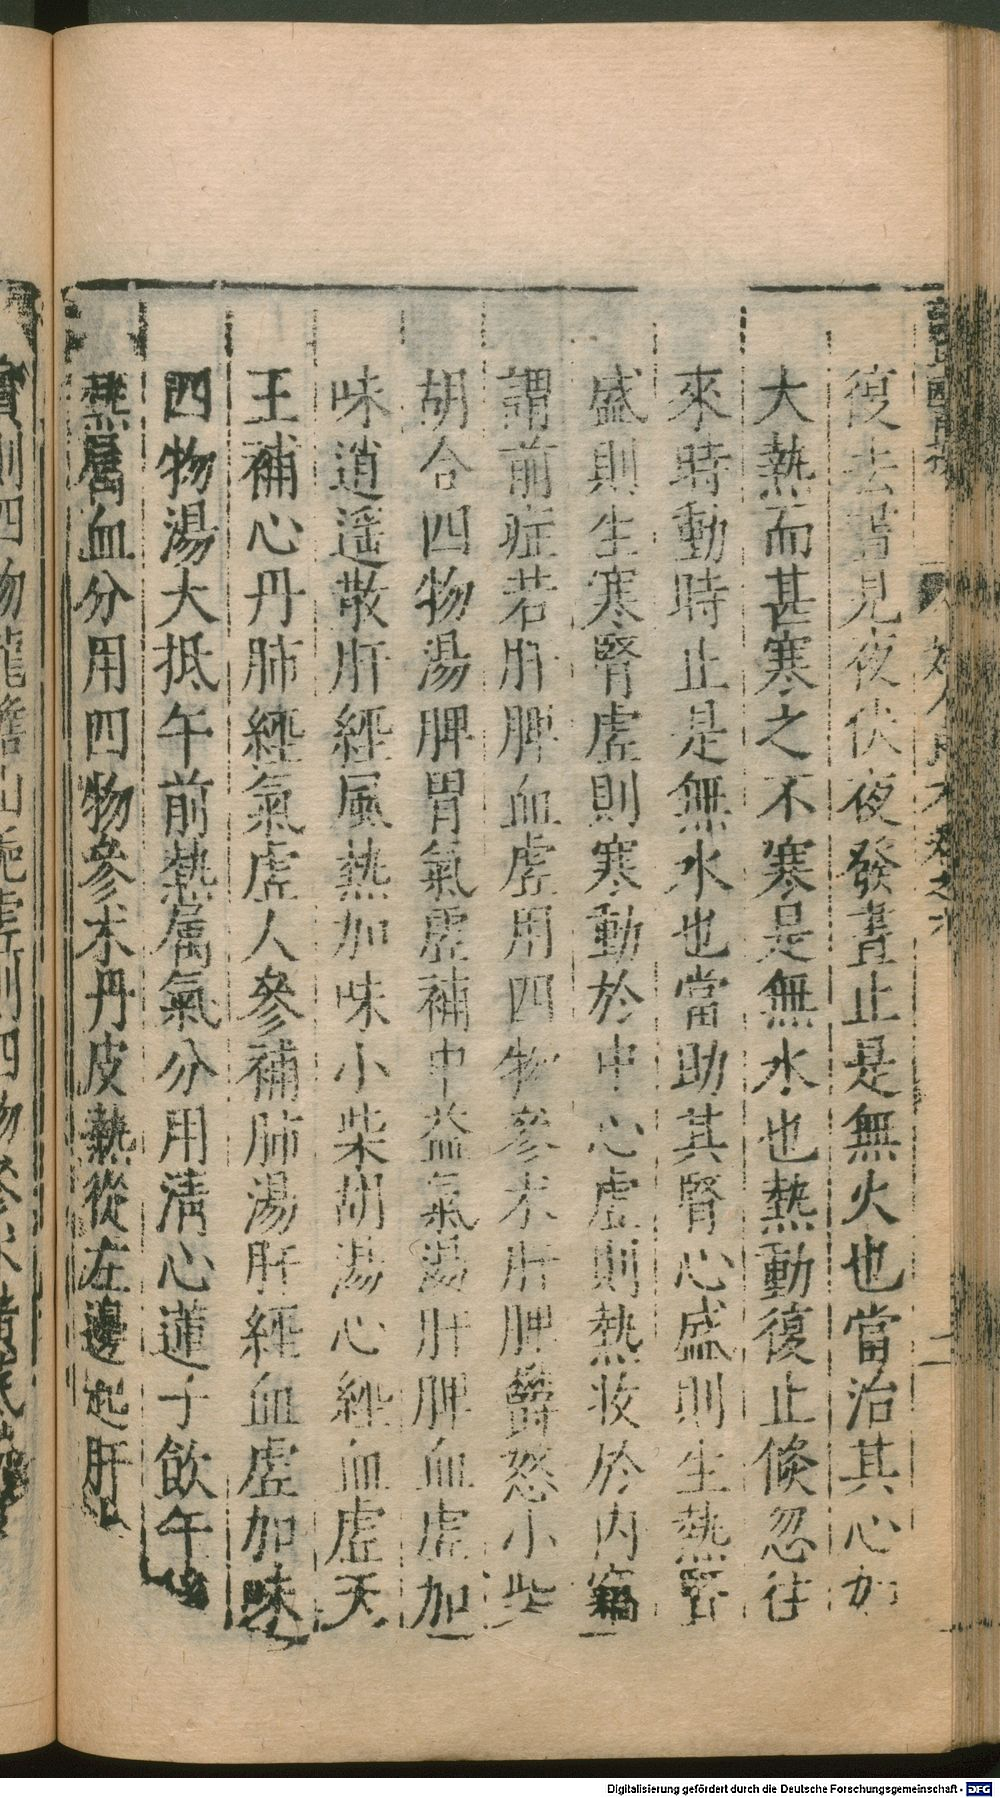 復去晝見夜伏夜發晝止是無火也當治其心如
大熱而甚寒之不寒是無水也熱動復止倏忽往
來時動時止是無水也當助其腎心盛則生熱腎
盛則生寒腎虛則寒動於中心虛則熱收於內竊
謂前症若肝脾血虛用四物參朮肝脾鬱怒小柴
胡合四物湯脾胃氣虛補中益氣湯肝脾血虛加
味逍遥散肝經風熱加味小柴胡湯心經血虛天
王補心丹肺經氣虛人參補肺湯肝經血虛加味
四物湯大抵午前熱属氣分用清心蓮子飲午後
熱屬血分用四物參朮丹皮熱從左邊起肝火
實則四物龍膽山梔虛則四物參朮黃芪
Digitalisierung gefördert durch die Deutsche Forschungsgemeinschaft - DFG